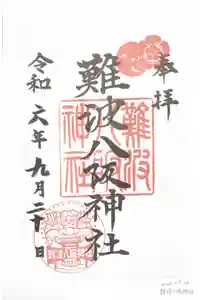 奉拝
難波八阪神社
難波
八阪
神社
令和六年九月二十日